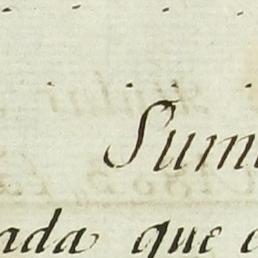 Sum
ada que